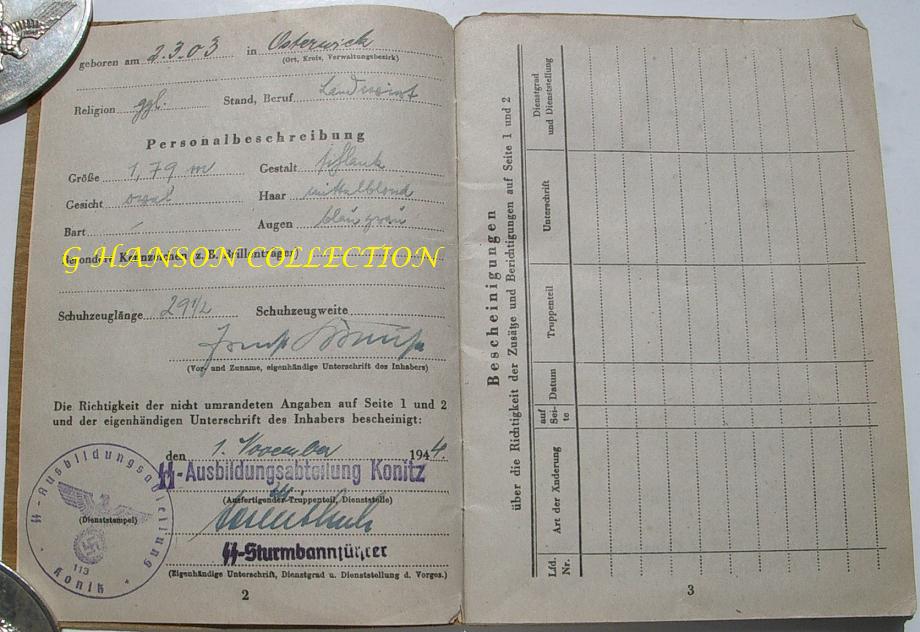 geboren am 2.3.03 in Osterwick
(Ort, Kreis, Verwaltungsbezirk)
Religion ggl. Stand, Beruf Landwirt
Personalbeschreibung
Größe 1,79 m Gestalt schlank
Gesicht oval Haar mittelblond
Bart - Augen blaugrau
Besondere Kennzeichen (z. B. Brillenträger)
G HANSON COLLECTION
Schuhzeuglänge 29 1/2 Schuhzeugweite
(Vor- und Zuname, eigenhändige Unterschrift des Inhabers)
Die Richtigkeit der nicht umrandeten Angaben auf Seite 1 und 2
und der eigenhändigen Unterschrift des Inhabers bescheinigt:
den 1. November 1944
SS-Ausbildungsabteilung Konitz
(Ausfertigender Truppenteil, Dienststelle)
SS-Sturmbannführer
(Eigenhändige Unterschrift, Dienstgrad u. Dienststellung d. Vorges.)
SS-Ausbildungsabteilung
(Dienststempel)
113
Konitz
2
Bescheinigungen
über die Richtigkeit der Zusätze und Berichtigungen auf Seite 1 und 2
Lfd. Nr.
Art der Änderung
auf Sei-te
Datum
Truppenteil
Unterschrift
Dienstgrad und Dienststellung
3